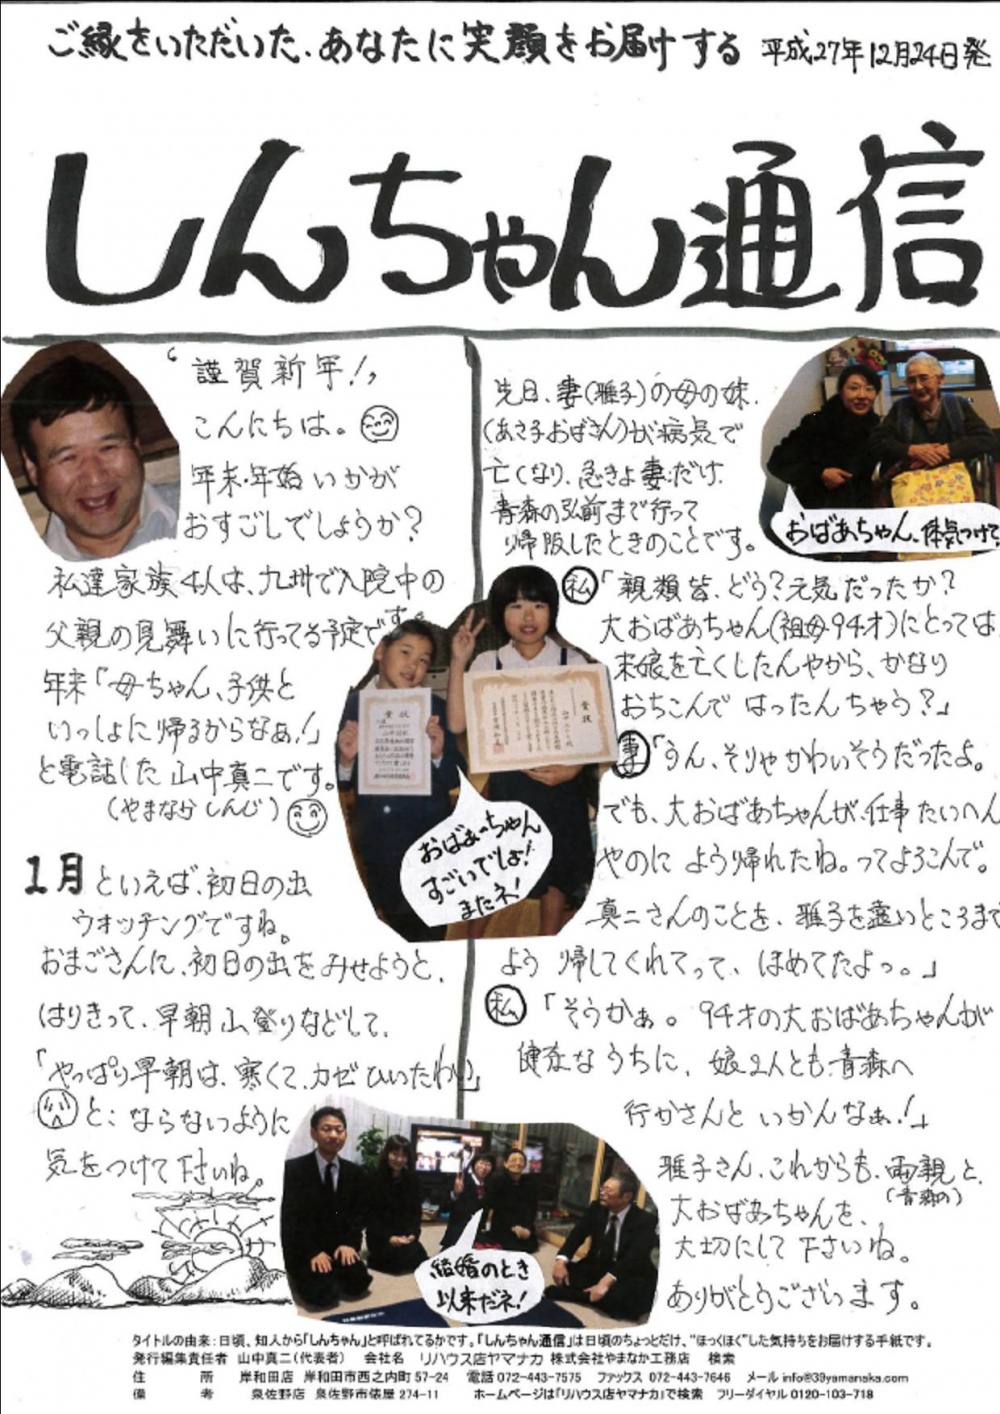 ご縁をいただいた、あなたに笑顔をお届けする 平成27年12月24日発
しんちゃん通信
"謹賀新年!"
こんにちは。
年末・年始いかが
おすごしでしょうか?
私達家族4人は、九州で入院中の
父親の見舞いに行ってる予定です。
年末「母ちゃん、子供と
いっしょに帰るからなぁ!」
と電話した山中真二です。
(やまなか しんじ)
1月といえば、初日の出
ウオッチングですね。
おまごさんに、初日の出をみせようと、
はりきって、早朝山登りなどして、
「やっぱり早朝は、寒くて、カゼひいたわい」
と:ならないように
気をつけて下さいね。
先日、妻(雅子)の母の妹、
(あさ子おばさん)が病気で
亡くなり、急きょ妻だけ、
青森の弘前まで行って
帰阪したときのことです。
おばあちゃん、体気つけて
私「親類皆、どう?元気だったか?
大おばあちゃん(祖母94才)にとっては、
末娘を亡くしたんやから、かなり
おちこんで はったんちゃう?」
妻「うん、そりゃかわいそうだったよ。
でも、大おばあちゃんが、仕事たいへん
やのに よう帰れたね。ってよろこんで。
真二さんのことを、雅子を遠いところまで
よう 帰してくれてって、ほめてたよっ。」
私「そうかぁ。94才の大おばあちゃんが
健在なうちに、娘2人とも、青森へ
行かさんと いかんなぁ!」
雅子さん、これからも、両親と、
(青森の)
大おばあちゃんを、
大切にして下さいね。
ありがとうございます。
賞状
賞状
おばぁーちゃん
すごいでしょ!
またネ!
結婚のとき
以来だネ!
タイトルの由来:日頃、知人から「しんちゃん」と呼ばれてるかです。「しんちゃん通信」は日頃のちょっとだけ、"ほっくほく"した気持ちをお届けする手紙です。
発行編集責任者 山中真二(代表者) 会社名 リハウス店ヤマナカ 株式会社やまなか工務店 検索
住 所 岸和田店 岸和田市西之内町57-24 電話072-443-7575 ファックス 072-443-7646 メールinfo@39yamanaka.com
備 考 泉佐野店 泉佐野市俵屋274-11 ホームページは「リハウス店ヤマナカ」で検索 フリーダイヤル0120-103-718